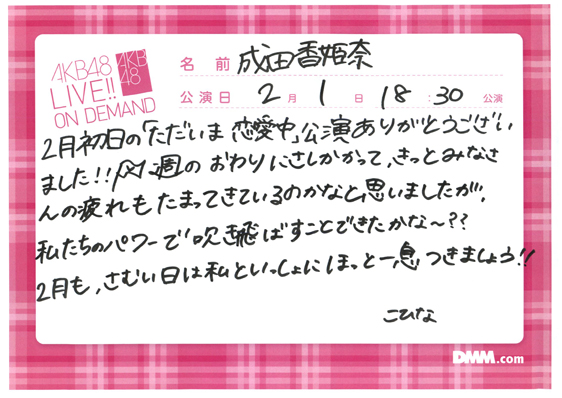 AKB48
LIVE!!
ON DEMAND
AKB
48
名前 成田香姫奈
公演日 2月1日 18:30 公演
2月初日の「ただいま 恋愛中」公演ありがとうござい
ました!! 1週のおわりにさしかかって、きっとみなさ
んの疲れもたまってきているのかなと思いましたが、
私たちのパワーで吹き飛ばすことできたかな〜??
2月も、さむい日は私といっしょにほっと一息つきましょう!!
こひな
DMM.com